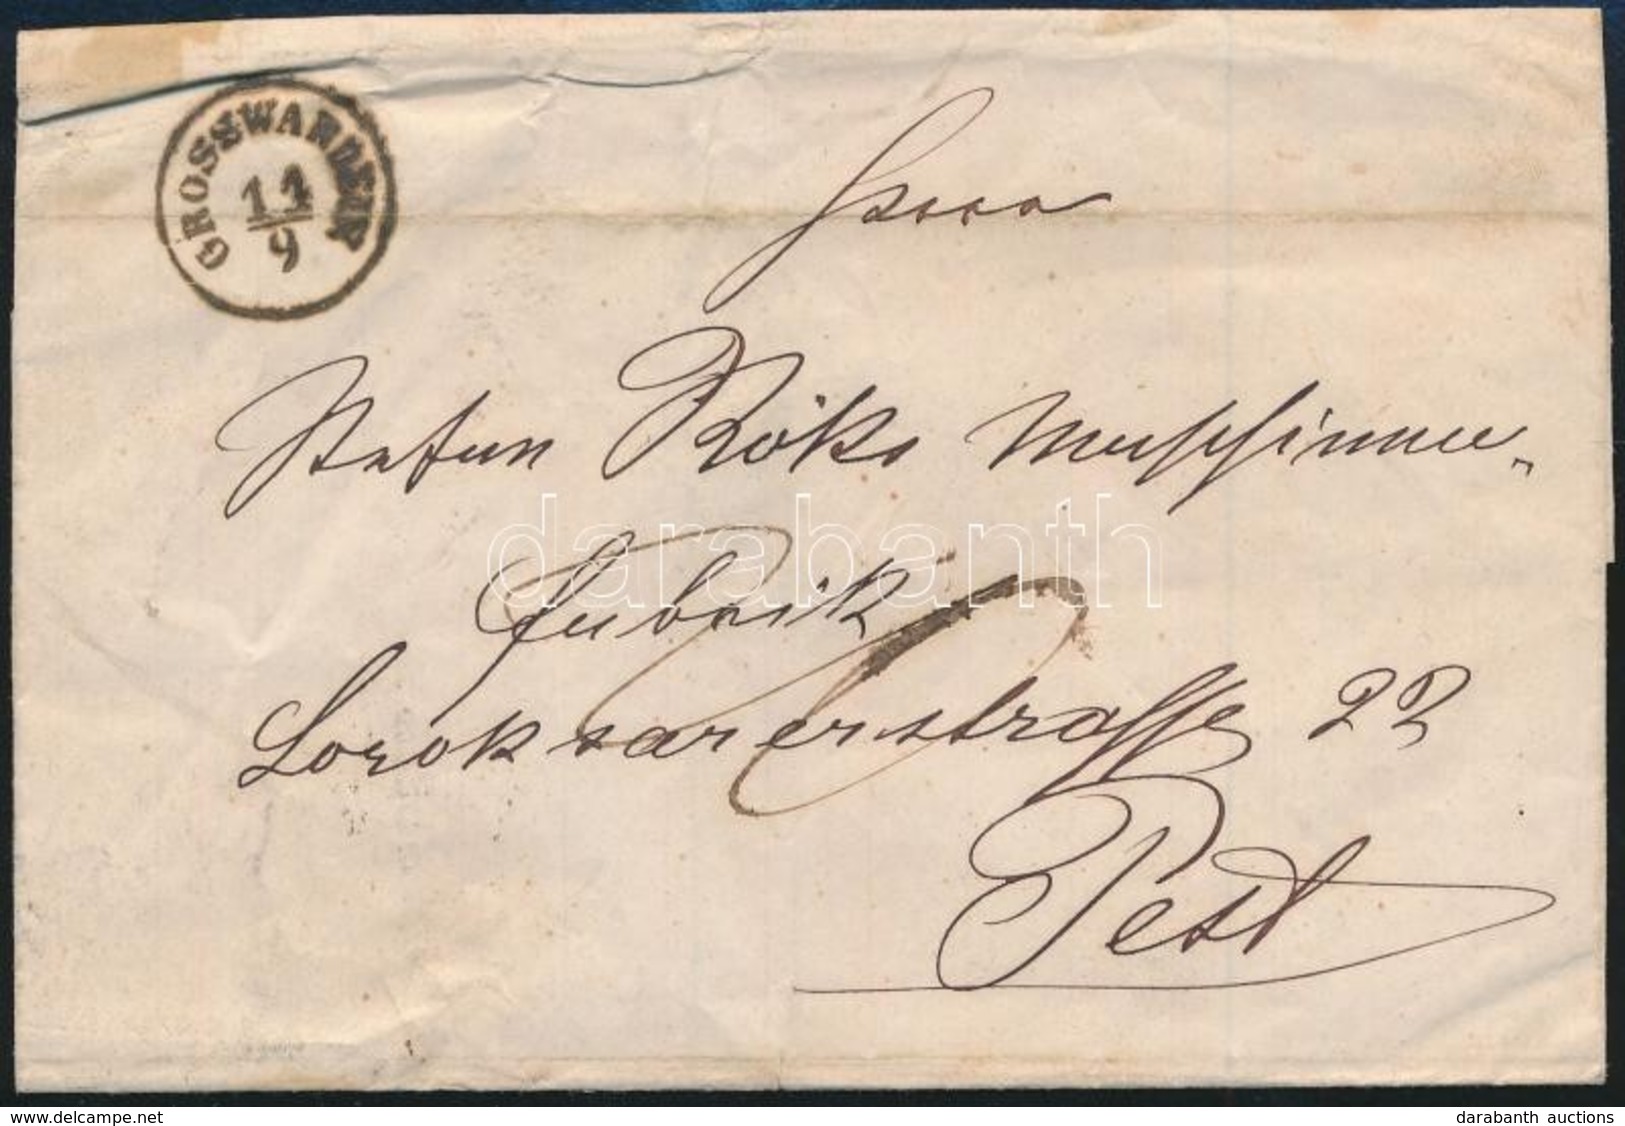 GROSSWARDEIN
11
9
Herrn
Stefan Röks Maschinen-
fabrik
Soroksarerstrasse 22
Pest
darabanth
www.delcampe.net
darabanth auctions